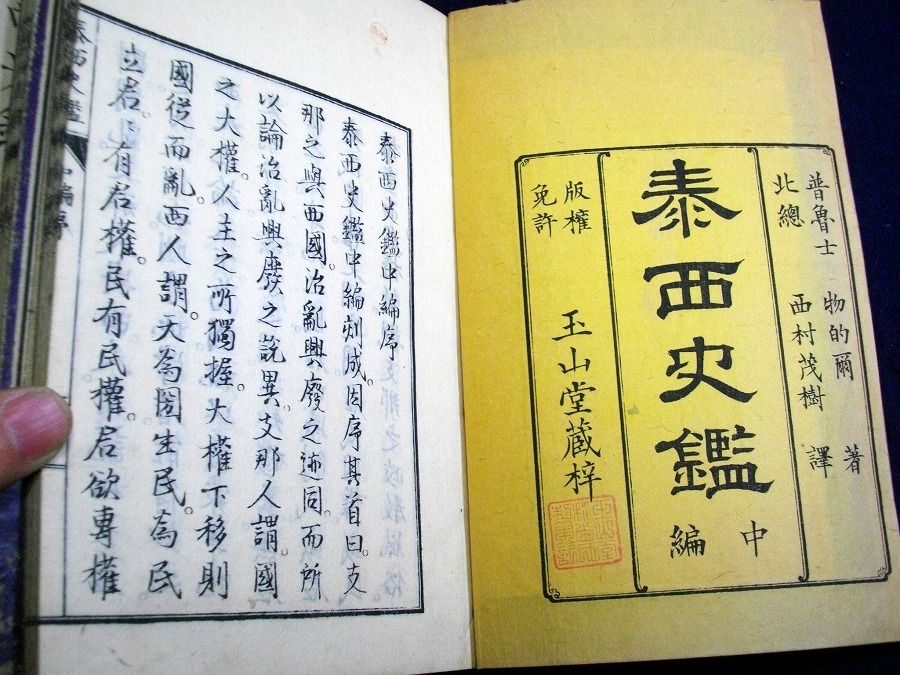 普魯士 物的爾 著
北總 西村茂樹 譯
泰西史鑑
中編
版權
免許
玉山堂藏梓
泰西史鑑中編序
泰西史鑑中編刻成。因序其首曰。支
那之與西國。治亂興廢之迹同。而所
以論治亂興廢之說異。支那人謂。國
之大權。人主之所獨握。大權下移。則
國從而亂。西人謂。天為國生民。為民
立君。君有君權。民有民權。君欲專權
泰西史鑑
中編序